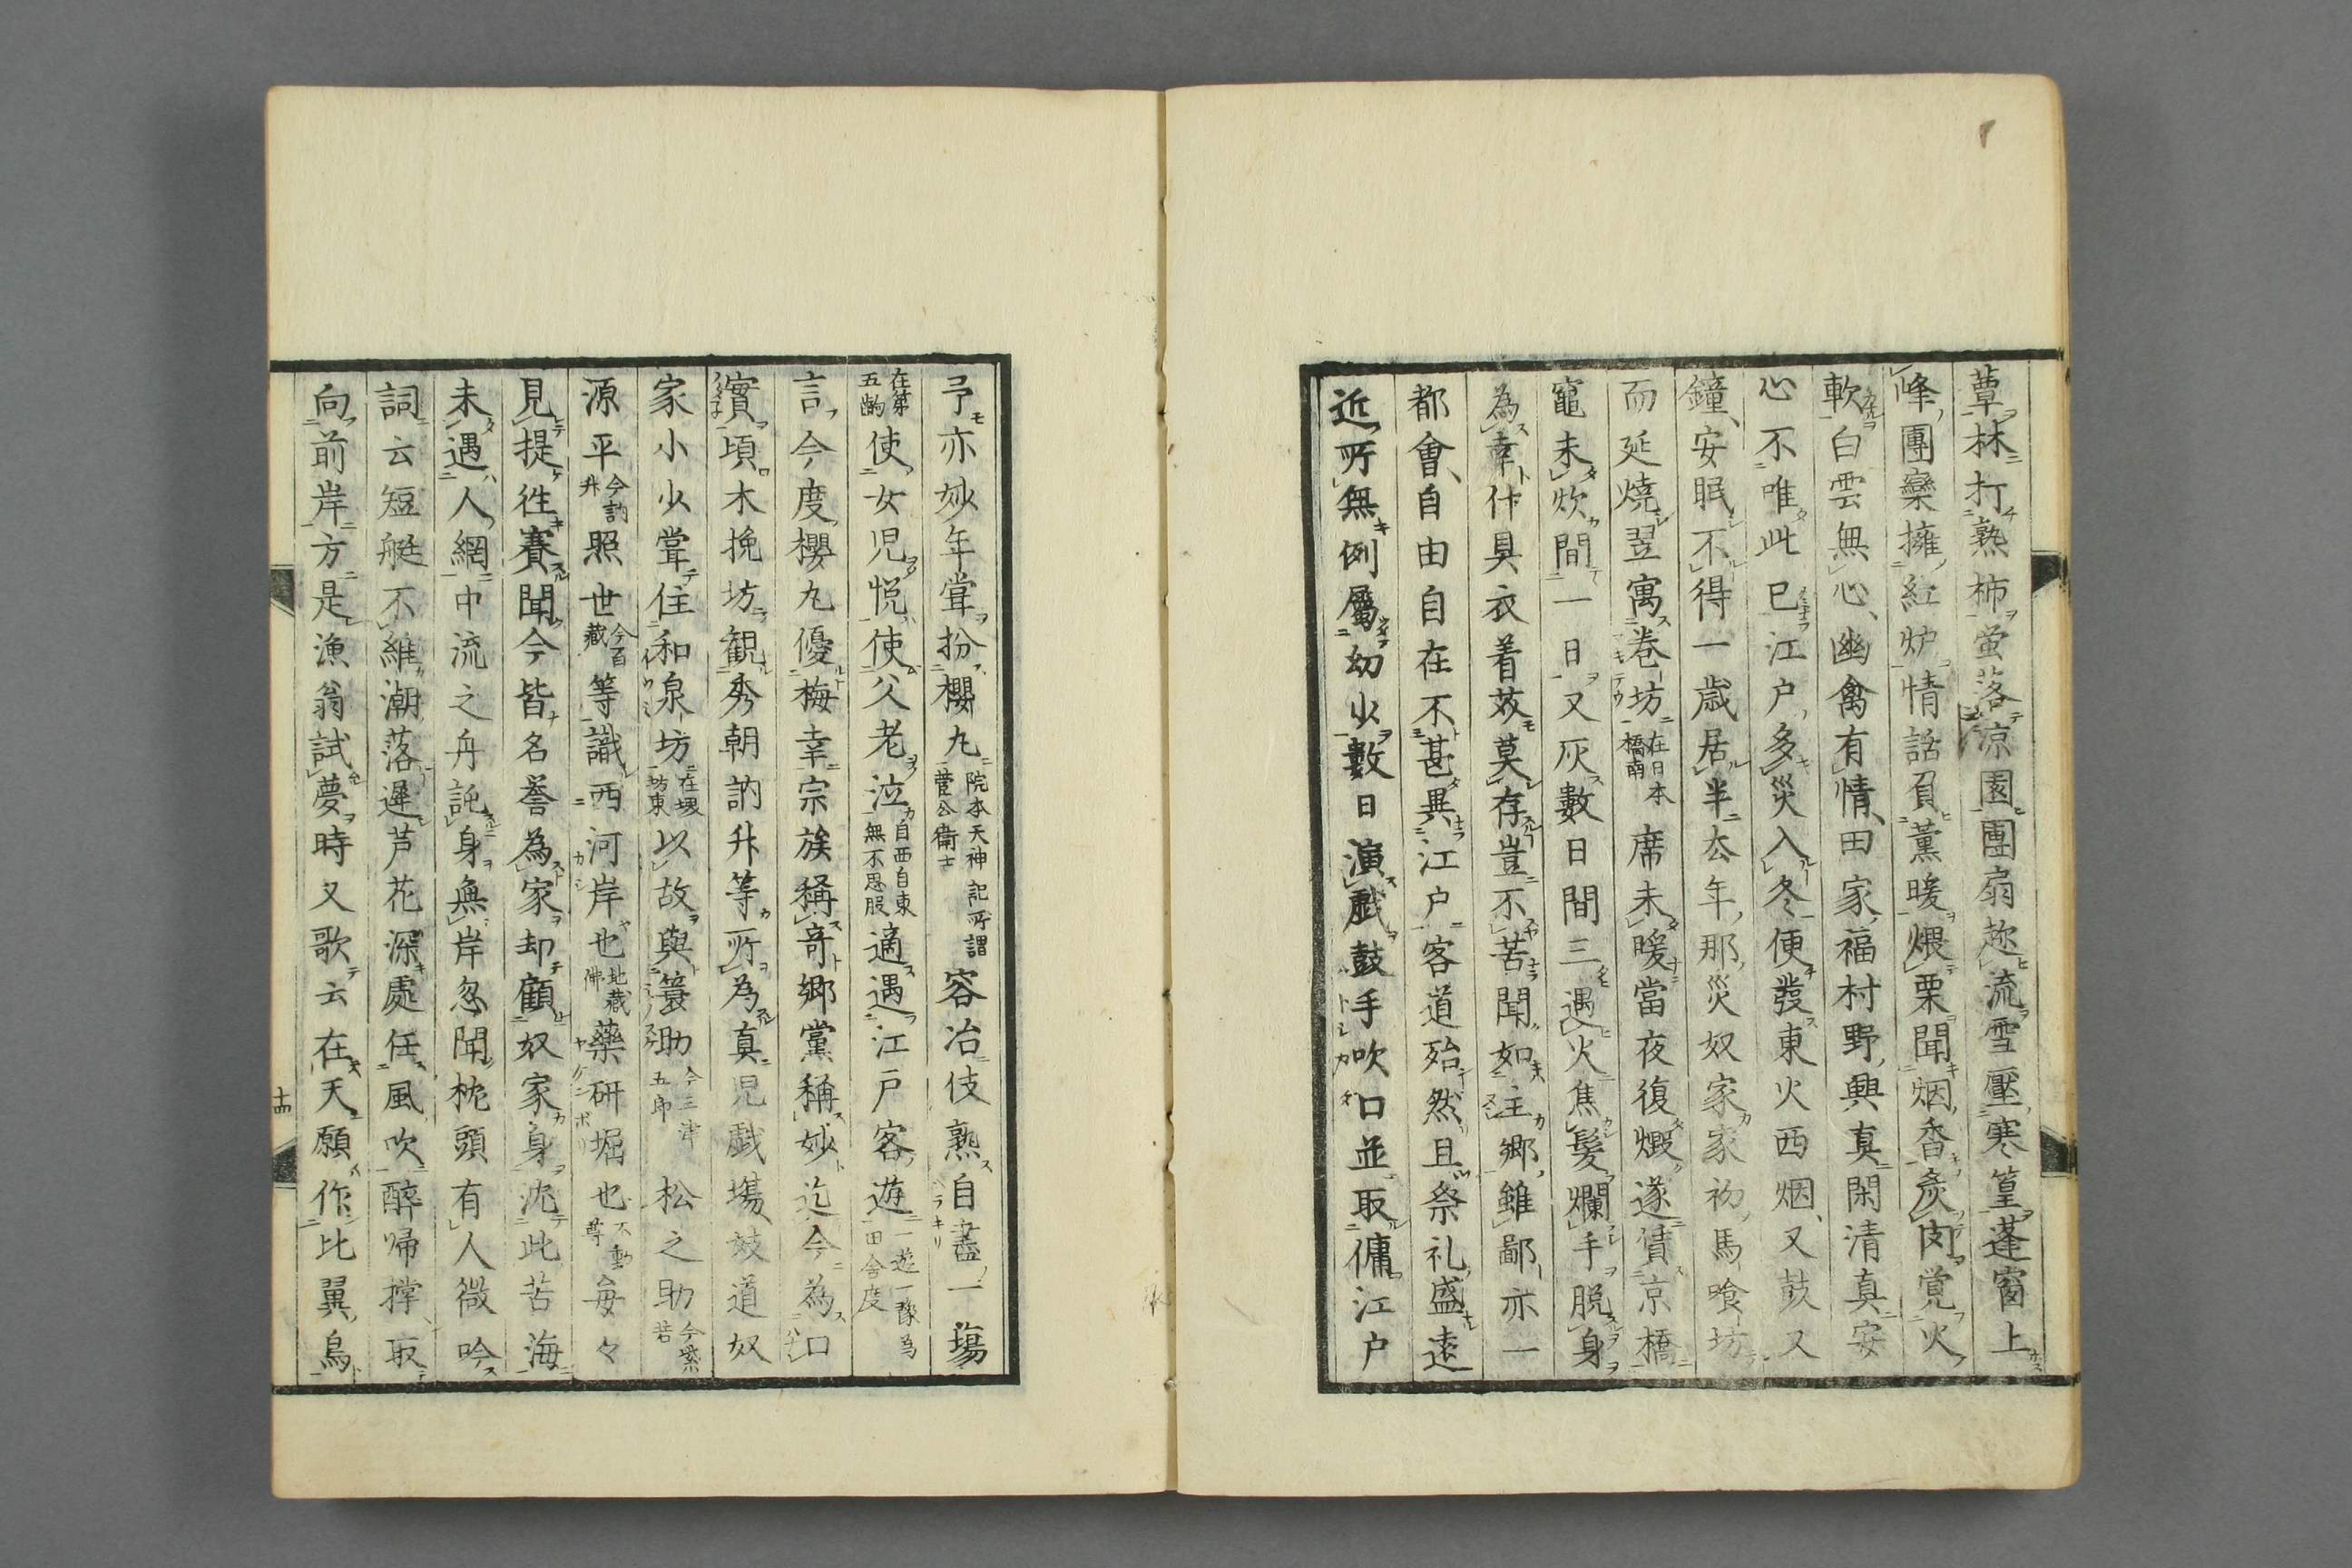 蕈林打熟柿蛍落涼園團扇趂流雪壓寒篁蓬窗上
峰團欒擁紅炉情話負薫暖煨栗聞烟香炙肉覚火
軟白雲無心幽禽有情田家福村野興真閑清真安
心不唯此已江户多災入冬便發東火西烟又鼓又
鐘安眠不得一歳居半太年那災奴家家初馬喰坊
而延燒翌寓巻坊在日本橋南席未暖當夜復燬遂僦京橋
竈未炊間一日又灰數日間三遇火焦髮爛手脱身
為幸什具衣着莫存豈不苦聞如主郷雖鄙亦一
都會自由自在不甚異江户客道殆然且祭礼盛遠
近所無例屬幼少數日演戲鼓手吹口並取傭江户
予亦妙年甞扮櫻丸院本天神記所謂菅公衛士容冶伎熟自盡一場
在第五齣使女児悦使父老泣自西自東無不思服適遇江戸客遊一遊一豫為田舍度
言今度櫻丸優梅幸宗族稱竒郷黨稱妙迄今為口
實頃木挽坊観秀朝訥升等所為真児戯塲妓道奴
家小少甞住和泉坊在堺坊東以故與簑助今三津五郎松之助今紫若
源平今訥升照世今百藏等識西河岸也地藏佛藥研堀也不動尊毎々
見提徃賽聞今皆名誉為家却顧奴家身沈此苦海
未遇人網中流之舟託身無岸忽聞枕頭有人微吟
詞云短艇不維潮落遲芦花深處任風吹醉帰撑取
向前岸方是漁翁試夢時又歌云在天願作比翼鳥
十四